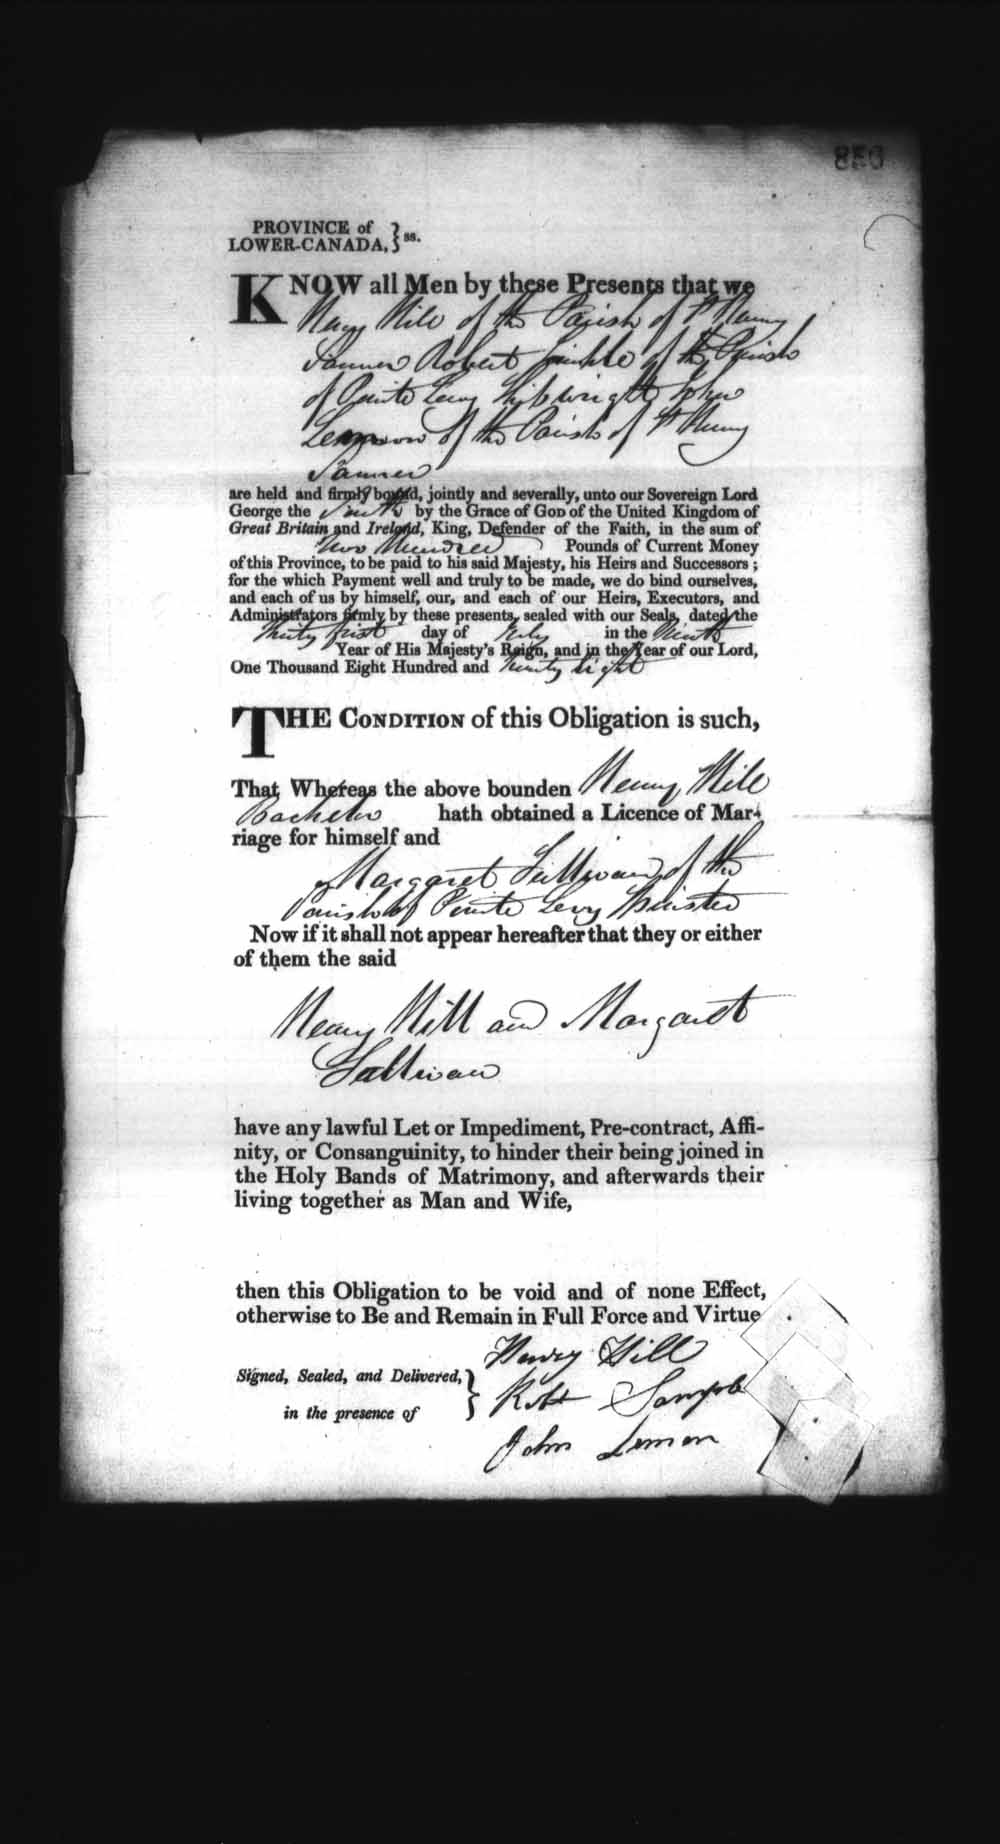 856
PROVINCE of
LOWER-CANADA, } ss.
KNOW all Men by these Presents that we
Henry Hill of the Parish of St Henry
Tanner Robert of the Parish
of Pointe Levy Shipwright John
Lemmon of the Parish of St Henry
Tanner
are held and firmly bound, jointly and severally, unto our Sovereign Lord
George the Fourth by the Grace of GOD of the United Kingdom of
Great Britain and Ireland, King, Defender of the Faith, in the sum of
Two Hundred Pounds of Current Money
of this Province, to be paid to his said Majesty, his Heirs and Successors ;
for the which Payment well and truly to be made, we do bind ourselves,
and each of us by himself, our, and each of our Heirs, Executors, and
Administrators firmly by these presents, sealed with our Seals, dated the
Thirty first day of July in the Ninth
Year of His Majesty's Reign, and in the Year of our Lord,
One Thousand Eight Hundred and Twenty Eight
THE CONDITION of this Obligation is such,
That Whereas the above bounden Henry Hill
Bachelor hath obtained a Licence of Mar-
riage for himself and
Margaret Sullivan of the
Parish of Pointe Levy Spinster
Now if it shall not appear hereafter that they or either
of them the said
Henry Hill and Margaret
Sullivan
have any lawful Let or Impediment, Pre-contract, Affi-
nity, or Consanguinity, to hinder their being joined in
the Holy Bands of Matrimony, and afterwards their
living together as Man and Wife,
then this Obligation to be void and of none Effect,
otherwise to Be and Remain in Full Force and Virtue
Signed, Sealed, and Delivered, }
in the presence of
Henry Hill
Robt Sample
John Lemon